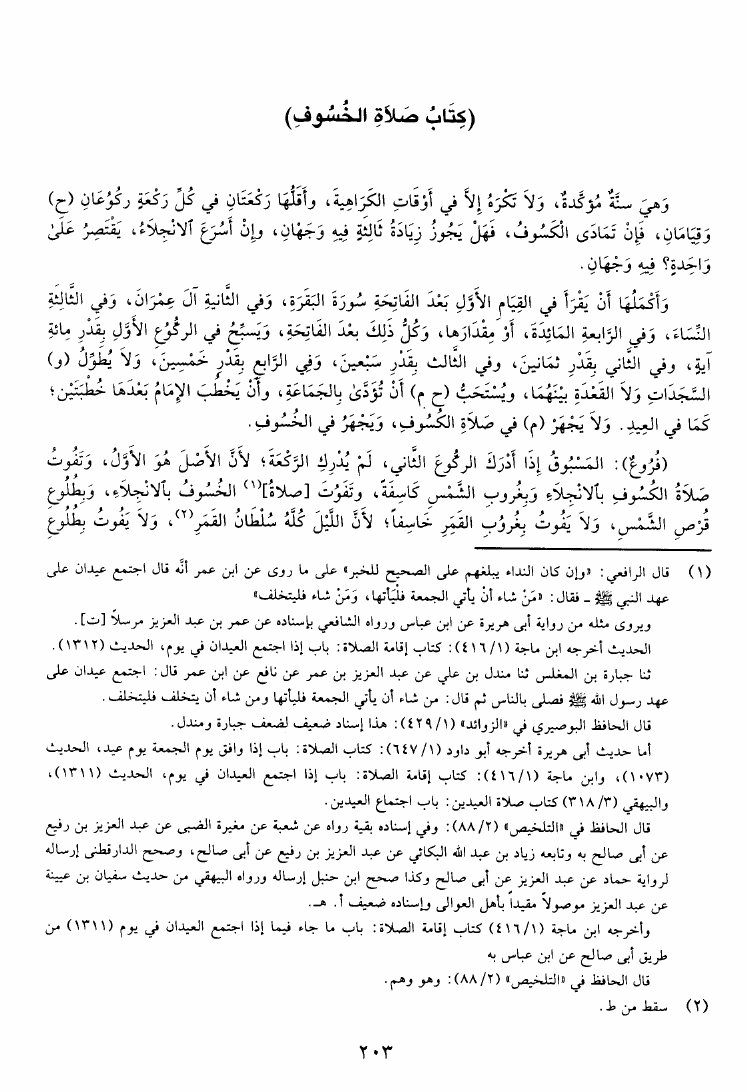 (كِتَابُ صَلاَةِ الخُسُوفِ)
وَهِيَ سنَّةٌ مُؤكَّدةٌ، وَلاَ تَكْرَهُ إلاَّ في أَوْقَاتِ الكَرَاهِيةَ، وأَقلُّهَا رَكْعَتَانِ في كُلِّ رَكْعَةٍ رِكُوُعَانِ (ح)
وَقِيَامَانِ، فَإنْ تَمَادَى الْكَسُوفُ، فَهَلْ يَجُوزُ زِيَادَةُ ثَالِثةٍ فِيهِ وَجْهَانِ، وإنْ أَسْرَعَ ٱلانْجِلاَءُ، يَقْتَصِرُ عَلَىٰ
وَاحِدةٍ؟ فِيهِ وَجْهَانِ.
وَأَكْمَلُهَا أَنْ يَقْرَأَ في القِيَامِ الأوَّلِ بَعْدَ الفَاتِحَةِ سُورَةَ البَقَرَةِ، وَفي الثَّانيةِ آلَ عِمْرَانَ، وَفي الثَّالِثةِ
النِّسَاءَ، وَفي الرَّابعةِ المَائدَةَ، أَوْ مِقْدَارَها، وَكُلُّ ذَلِكَ بعْدَ الفَاتِحَةِ، وَيَسبِّحُ في الركُوُعِ الأوَّلِ بِقَدْرِ مائةِ
آيةٍ، وفي الثَّاني بِقَدْرِ ثمَانينَ، وفي الثَّالث بِقَدْرِ سَبْعينَ، وَفِي الرَّابعِ بِقَدْرِ خَمْسِينَ، وَلاَ يُطَوِّلُ (و)
السَّجَدَاتِ وَلاَ القَعْدَةِ بيْنَهُمَا، ويُسْتَحَبُّ (ح م) أَنْ تُؤَدَّىٰ بِالجَمَاعَةِ، وأَنْ يَخْطُبَ الإمَامُ بَعْدَهَا خُطْبَتَيْن؛
كَمَا في العِيدِ. وَلاَ يَجْهَرُ (م) في صَلاَةِ الكُسُوفِ، وَيَجْهَرُ في الخُسُوفِ.
(فُرُوعٌ): المَسْبُوقُ إذَا أَدْرَكَ الركُوعَ الثَّاني، لَمْ يُدْرِكِ الرَّكْعَةَ؛ لأَنَّ الأَصْلَ هُوَ الأَوَّلُ، وَتَفُوتُ
صَلاَةُ الكُسُوفِ بِٱلانْجِلاَءِ وَبِغُروبِ الشَّمْسِ كَاسِفَةً، وتَفَوُتُ [صلاةُ](١) الخُسُوفُ بِٱلانْجِلاَءِ، وَبِطُلُوعِ
قُرْصِ الشَّمْسِ، وَلاَ يَفُوتُ بِغُرُوُبِ القَمَرِ خَاسِفاً؛ لأَنَّ اللَّيْلَ كُلَّهُ سُلْطَانُ القَمَرِ(٢)، وَلاَ يَفُوتُ بِطُلُوعِ
(١) قال الرافعي: «وإن كان النداء يبلغهم على الصحيح للخبر» على ما روى عن ابن عمر أنَّه قال اجتمع عيدان على
عهد النبي ﷺ - فقال: «مَنْ شاء أنْ يأتي الجمعة فليَأتها، وَمَنْ شاء فليتخلف»
ويروى مثله من رواية أبى هريرة عن ابن عباس ورواه الشافعي بإسناده عن عمر بن عبد العزيز مرسلاً [ت].
الحديث أخرجه ابن ماجة (٤١٦/١): كتاب إقامة الصلاة: باب إذا اجتمع العيدان في يوم، الحديث (١٣١٢).
ثنا جبارة بن المغلس ثنا مندل بن علي عن عبد العزيز بن عمر عن نافع عن ابن عمر قال: اجتمع عيدان على
عهد رسول الله ﷺ فصلى بالناس ثم قال: من شاء أن يأتي الجمعة فليأتها ومن شاء أن يتخلف فليتخلف.
قال الحافظ البوصيري في «الزوائد» (٤٢٩/١): هذا إسناد ضعيف لضعف جبارة ومندل.
أما حديث أبى هريرة أخرجه أبو داود (٦٤٧/١): كتاب الصلاة: باب إذا وافق يوم الجمعة يوم عيد، الحديث
(١٠٧٣)، وابن ماجة (٤١٦/١): كتاب إقامة الصلاة: باب إذا اجتمع العيدان في يوم، الحديث (١٣١١)،
والبيهقي (٣١٨/٣) كتاب صلاة العيدين: باب اجتماع العيدين.
قال الحافظ في «التلخيص» (٨٨/٢): وفي إسناده بقية رواه عن شعبة عن مغيرة الضبى عن عبد العزيز بن رفيع
عن أبى صالح به وتابعه زياد بن عبد الله البكائي عن عبد العزيز بن رفيع عن أبى صالح، وصحح الدارقطنى إرساله
لرواية حماد عن عبد العزيز عن أبى صالح وكذا صحح ابن حنبل إرساله ورواه البيهقي من حديث سفيان بن عيينة
عن عبد العزيز موصولاً مقيداً بأهل العوالى وإسناده ضعيف أ. هـ.
وأخرجه ابن ماجة (٤١٦/١) كتاب إقامة الصلاة: باب ما جاء فيما إذا اجتمع العيدان في يوم (١٣١١) من
طريق أبى صالح عن ابن عباس به
قال الحافظ في «التلخيص» (٨٨/٢): وهو وهم.
(٢) سقط من ط.
٢٠٣